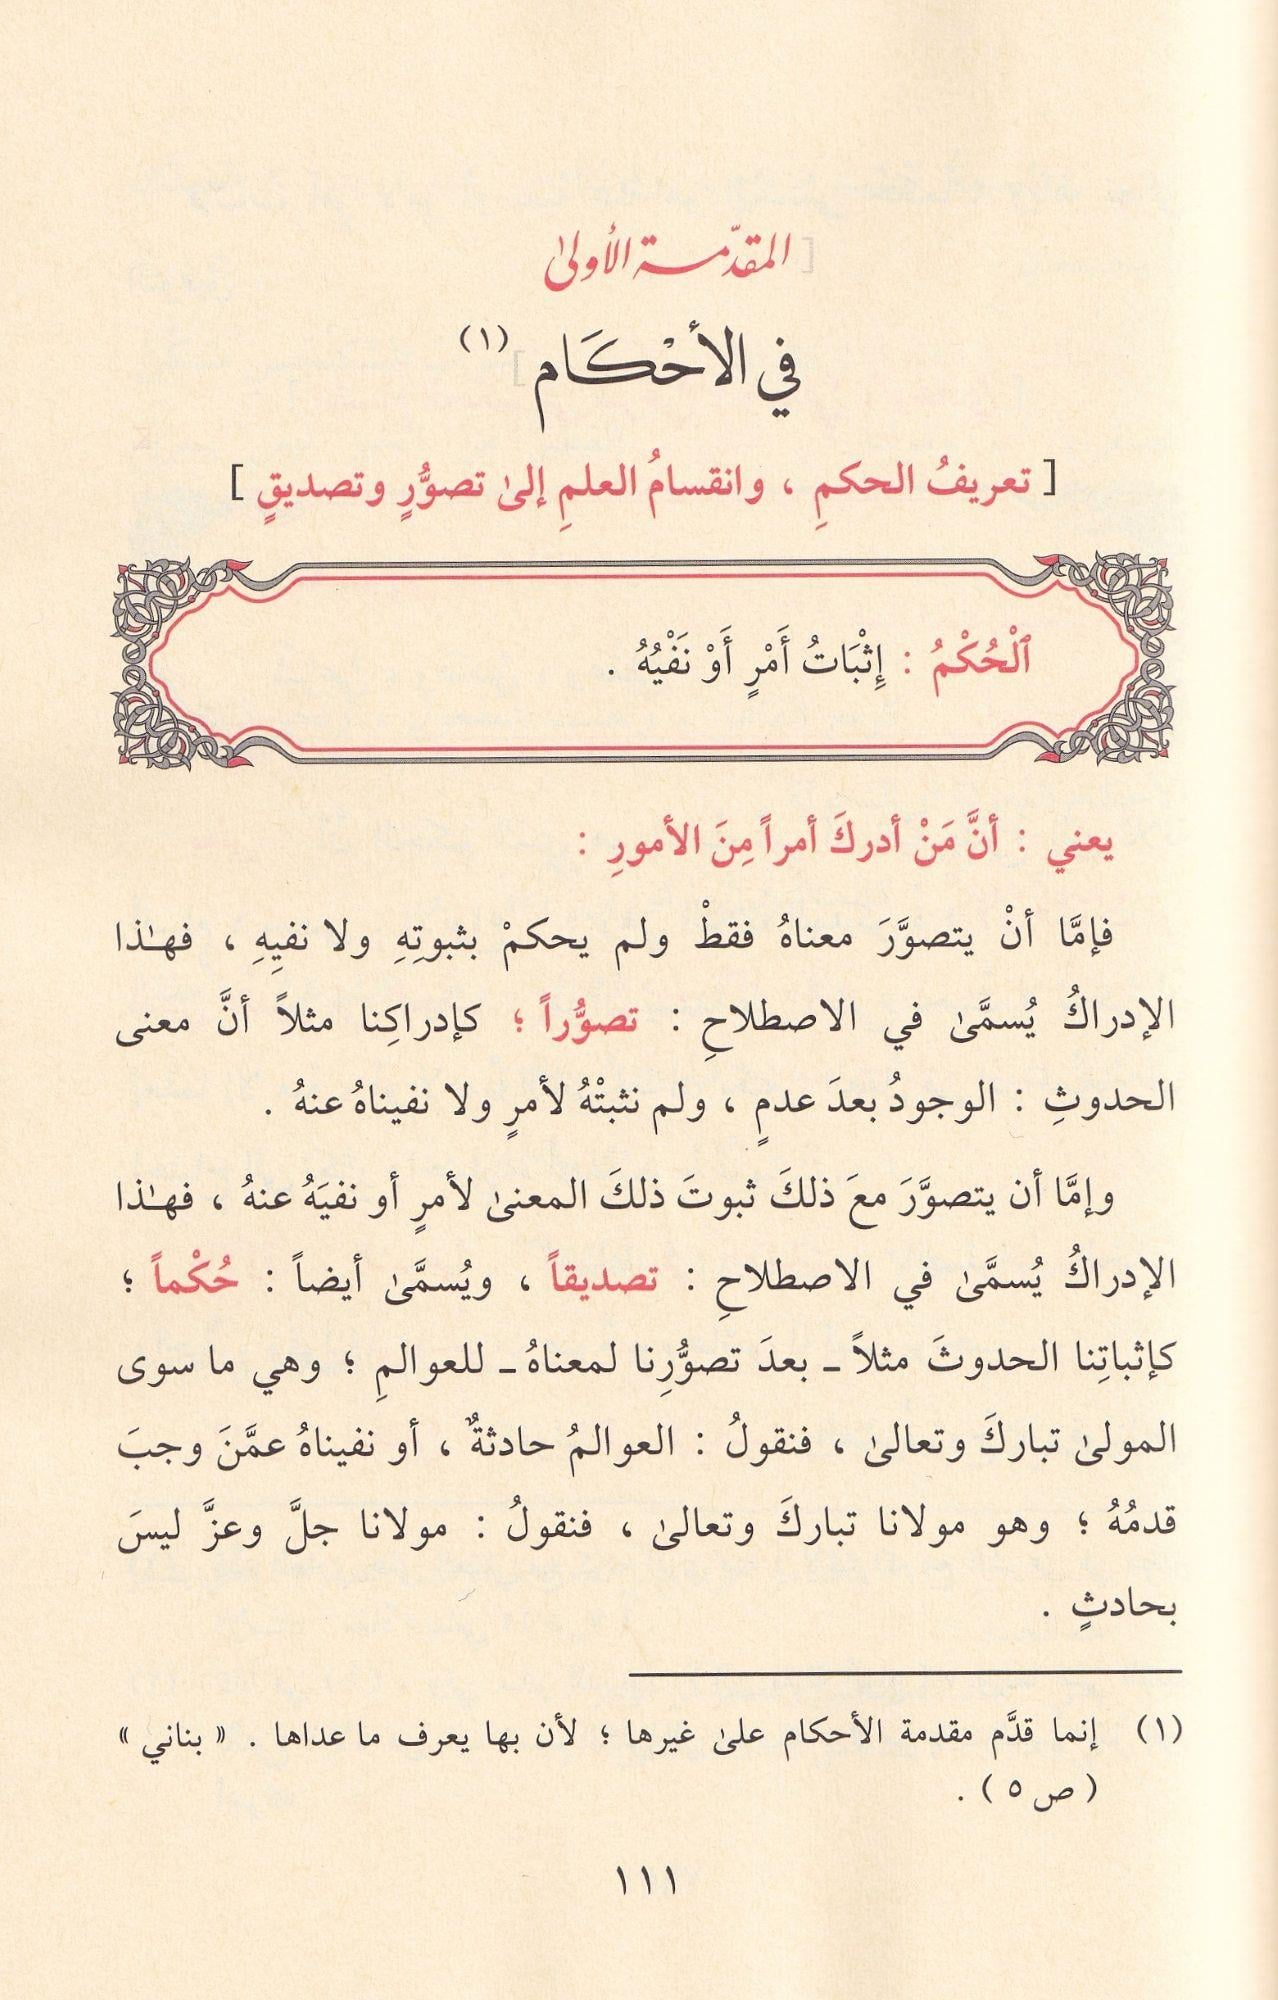 المقدّمة الأولىٰ
في الأَحْكَام (١)
[ تعريفُ الحكمِ ، وانقسامُ العلمِ إلىٰ تصوُّرٍ وتصديقٍ ]
ٱلْحُكْمُ : إِثْبَاتُ أَمْرٍ أَوْ نَفْيُهُ .
يعني : أنَّ مَنْ أدركَ أمراً مِنَ الأمورِ :
فإمَّا أنْ يتصوَّرَ معناهُ فقطْ ولم يحكمْ بثبوتِهِ ولا نفيِهِ ، فهـٰذا
الإدراكُ يُسمَّىٰ في الاصطلاحِ : تصوُّراً ؛ كإدراكِنا مثلاً أنَّ معنى
الحدوثِ : الوجودُ بعدَ عدمٍ ، ولم نثبتْهُ لأمرٍ ولا نفيناهُ عنهُ .
وإمَّا أن يتصوَّرَ معَ ذلكَ ثبوتَ ذلكَ المعنىٰ لأمرٍ أو نفيَهُ عنهُ ، فهـٰذا
الإدراكُ يُسمَّىٰ في الاصطلاحِ : تصديقاً ، ويُسمَّىٰ أيضاً : حُكْماً ؛
كإثباتِنا الحدوثَ مثلاً ـ بعدَ تصوُّرِنا لمعناهُ ـ للعوالمِ ؛ وهي ما سوى
المولىٰ تباركَ وتعالىٰ ، فنقولُ : العوالمُ حادثةٌ ، أو نفيناهُ عمَّنَ وجبَ
قدمُهُ ؛ وهو مولانا تباركَ وتعالىٰ ، فنقولُ : مولانا جلَّ وعزَّ ليسَ
بحادثٍ .
(١) إنما قدَّم مقدمة الأحكام علىٰ غيرها ؛ لأن بها يعرف ما عداها . « بناني »
( ص ٥ ) .
١١١